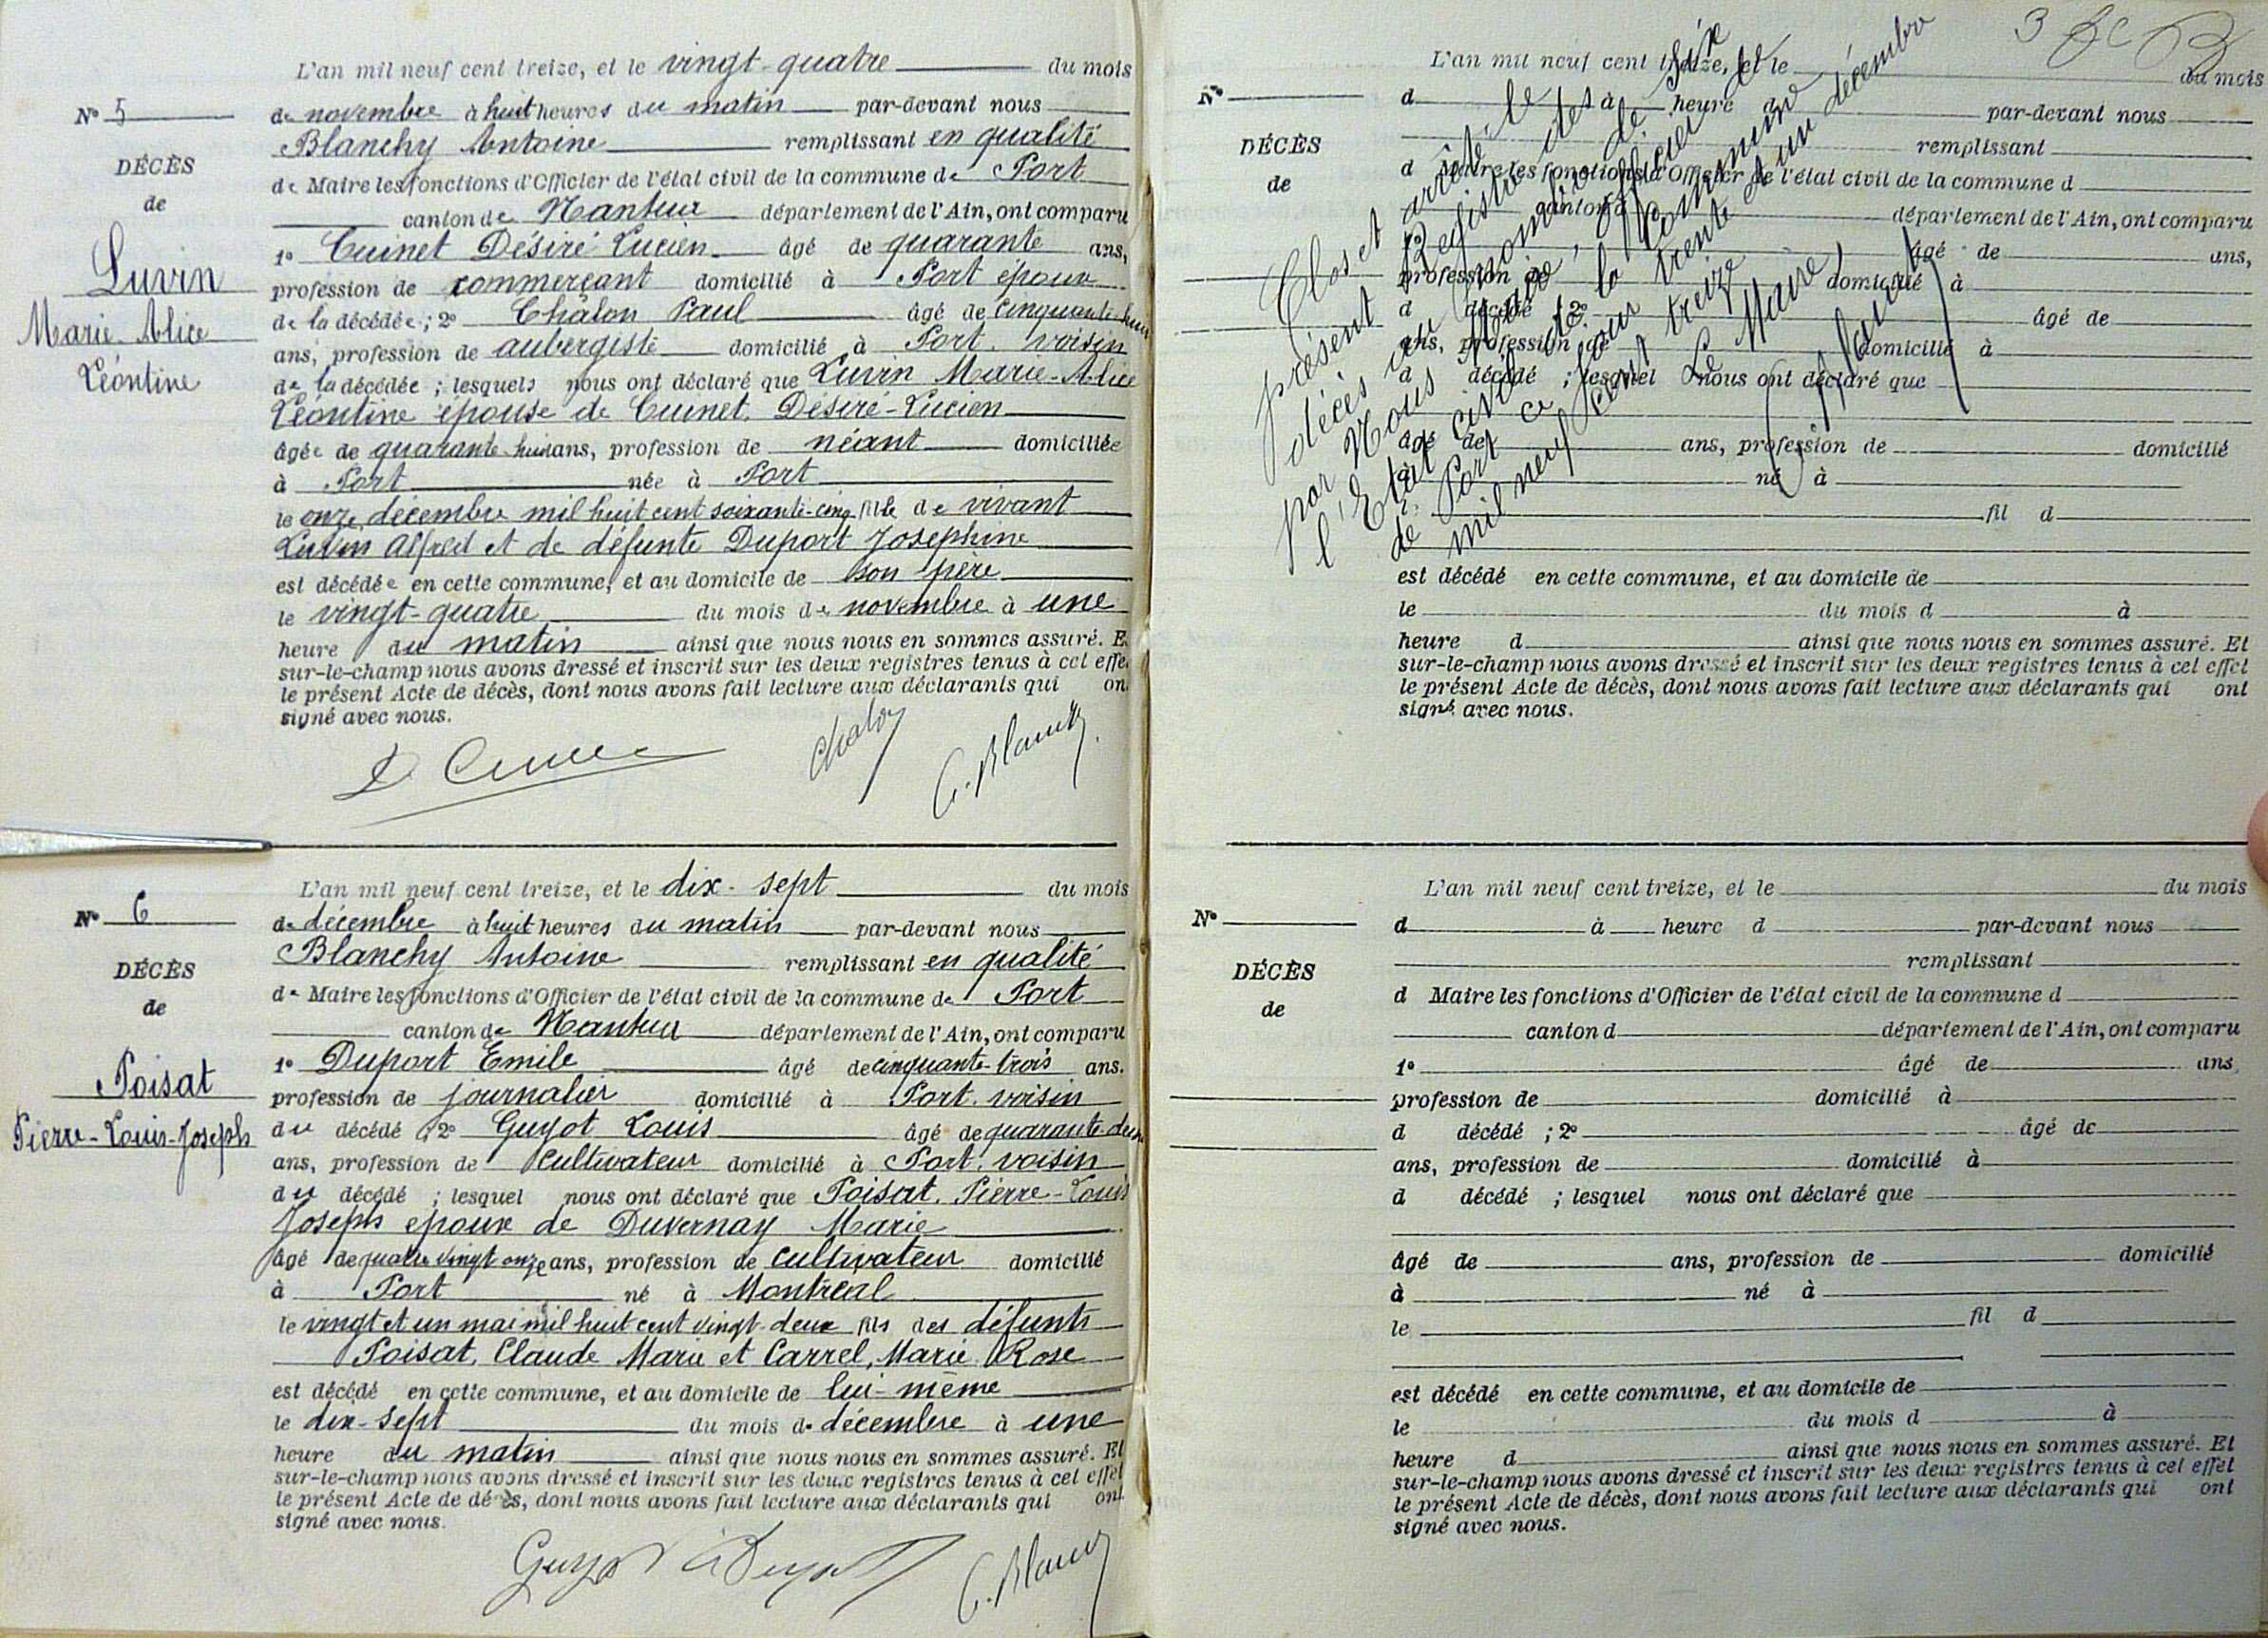 L'an mil neuf cent treize, et le vingt-quatre du mois
N° 5
de novembre à huit heures du matin par-devant nous
Blanchy Antoine remplissant en qualité
DÉCÈS
de Maire les fonctions d'Officier de l'état civil de la commune de Port
de
canton de Nantua département de l'Ain, ont comparu
1° Cuinet Désiré Lucien âgé de quarante ans,
Luvin
profession de commerçant domicilié à Port époux
Marie-Alice
de la décédée ; 2° Châlon Paul âgé de cinquante-huit
ans, profession de aubergiste domicilié à Port. voisin
Léontine
de la décédée ; lesquels nous ont déclaré que Luvin Marie-Alice
Léontine épouse de Cuinet, Désiré-Lucien
âgée de quarante-huit ans, profession de néant domiciliée
à Port née à Port
le onze décembre mil huit cent soixante-cinq fille de vivant
Luvin Alfred et de défunte Duport Josephine
est décédée en cette commune, et au domicile de son père
le vingt-quatre du mois de novembre à une
heure du matin ainsi que nous nous en sommes assuré. E
sur-le-champ nous avons dressé et inscrit sur les deux registres tenus à cet effe
le présent Acte de décès, dont nous avons fait lecture aux déclarants qui on
signé avec nous.
Chalon
A. Blanchy
L'an mil neuf cent treize, et le dix-sept du mois
N° 6
de décembre à huit heures du matin par-devant nous
Blanchy Antoine remplissant en qualité
DÉCÈS
de Maire les fonctions d'Officier de l'état civil de la commune de Port
de
canton de Nantua département de l'Ain, ont comparu
1° Duport Emile âgé de cinquante-trois ans.
Poisat
profession de journalier domicilié à Port. voisin
Pierre-Louis-Joseph
du décédé ; 2° Guyot Louis âgé de quarante-deux
ans, profession de cultivateur domicilié à Port. voisin
du décédé ; lesquel nous ont déclaré que Poisat, Pierre-Louis
Joseph epoux de Duvernay Marie
âgé de quatre vingt onze ans, profession de cultivateur domicilié
à Port né à Montréal
le vingt et un mai mil huit cent vingt-deux fils des défunts
Poisat, Claude Marie et Carrel, Marie Rose
est décédé en cette commune, et au domicile de lui-même
le dix-sept du mois de décembre à une
heure du matin ainsi que nous nous en sommes assuré. Et
sur-le-champ nous avons dressé et inscrit sur les deux registres tenus à cet effet
le présent Acte de décès, dont nous avons fait lecture aux déclarants qui ont
signé avec nous.
Guyot Duport A. Blanchy
L'an mil neuf cent treize, et le du mois
N°
d à heure d par-devant nous
DÉCÈS
remplissant
d Maire les fonctions d'Officier de l'état civil de la commune d
de
canton d département de l'Ain, ont comparu
âgé de ans,
profession de domicilié à
d décédé ; 2° âgé de
ans, profession de domicilié à
d décédé ; lesquel nous ont déclaré que
âgé de ans, profession de domicilié
à né à
fil d
est décédé en cette commune, et au domicile de
le du mois d à
heure d ainsi que nous nous en sommes assuré. Et
sur-le-champ nous avons dressé et inscrit sur les deux registres tenus à cet effet
le présent Acte de décès, dont nous avons fait lecture aux déclarants qui ont
signé avec nous.
Clos et arrêté le
présent Registre des
décès au nombre de six
par Nous Maire, officier de
l'Etat civil de la Commune
de Port ce jour trente et un décembre
mil neuf cent treize
Le Maire,
A. Blanchy
L'an mil neuf cent treize, et le du mois
N°
d à heure d par-devant nous
remplissant
DÉCÈS
d Maire les fonctions d'Officier de l'état civil de la commune d
de
canton d département de l'Ain, ont comparu
1° âgé de ans,
profession de domicilié à
d décédé ; 2° âgé de
ans, profession de domicilié à
d décédé ; lesquel nous ont déclaré que
âgé de ans, profession de domicilié
à né à
le fil d
est décédé en cette commune, et au domicile de
le du mois d à
heure d ainsi que nous nous en sommes assuré. Et
sur-le-champ nous avons dressé et inscrit sur les deux registres tenus à cet effet
le présent Acte de décès, dont nous avons fait lecture aux déclarants qui ont
signé avec nous.